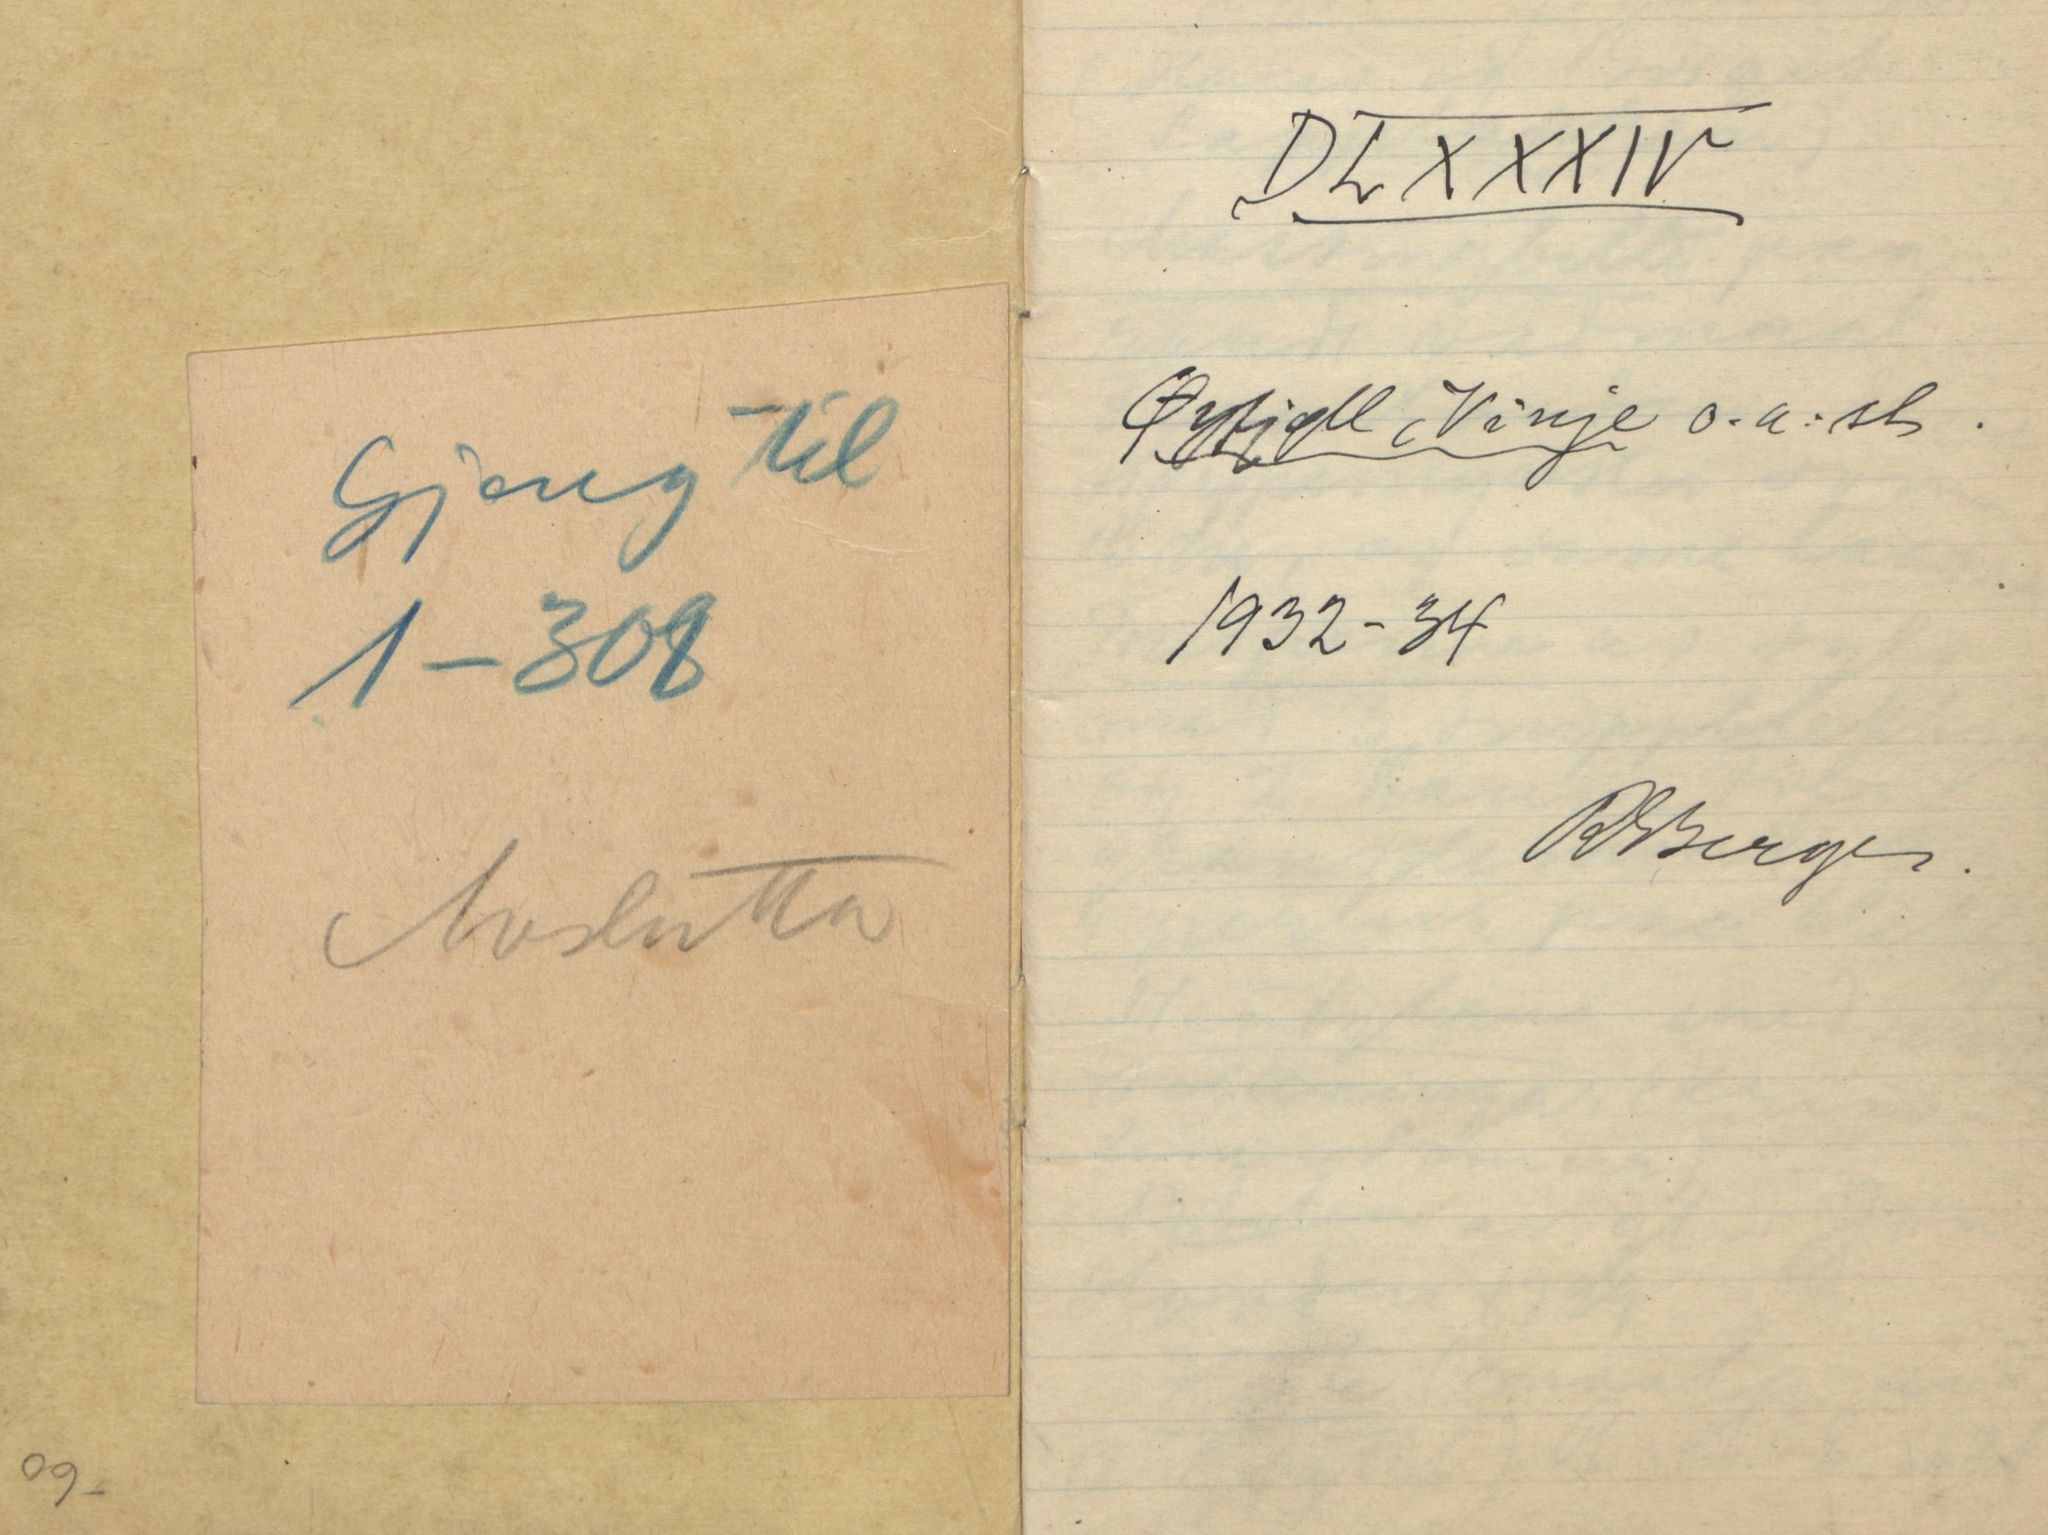 Gjeng til
1-308
Avslutta
09-
DLXXXIV
Øyfjell, Vinje o.a. st.
1932-34
RBerge.